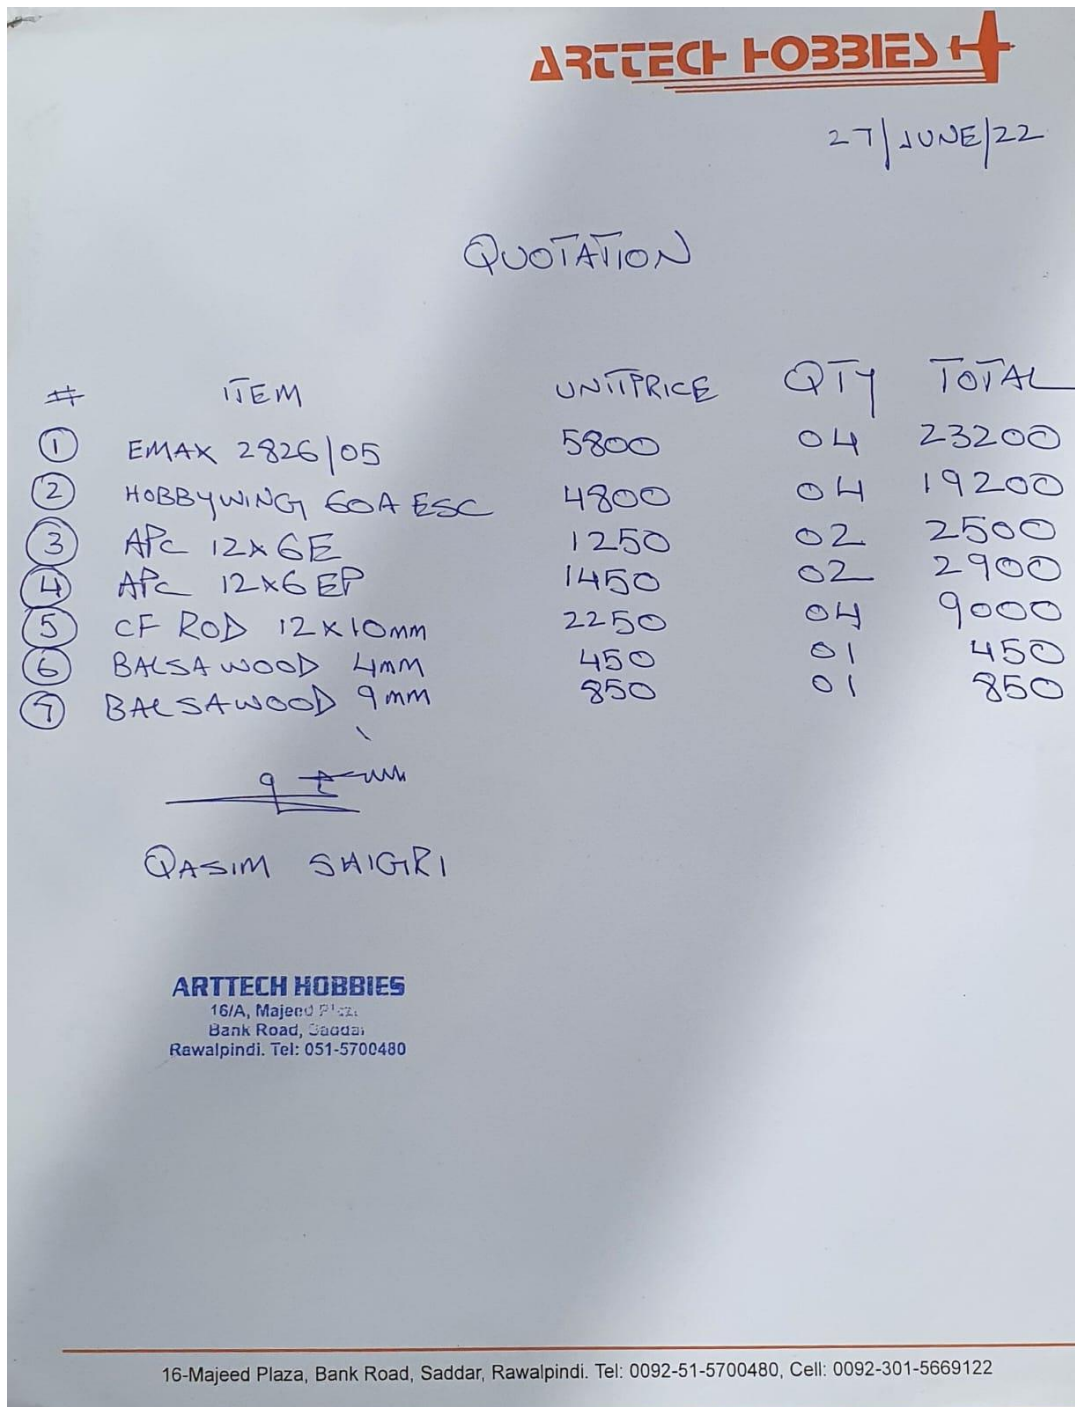 ARTTECH HOBBIES
27/JUNE/22
QUOTATION
# ITEM UNITPRICE QTY TOTAL
1 EMAX 2826/05 5800 04 23200
2 HOBBYWING 60A ESC 4800 04 19200
3 APC 12x6E 1250 02 2500
4 APC 12x6 EP 1450 02 2900
5 CF ROD 12x10mm 2250 04 9000
6 BALSA WOOD 4mm 450 01 450
7 BALSAWOOD 9mm 850 01 850
QASIM SHIGRI
ARTTECH HOBBIES
16/A, Majeed Plaza
Bank Road, Saddar
Rawalpindi. Tel: 051-5700480
16-Majeed Plaza, Bank Road, Saddar, Rawalpindi. Tel: 0092-51-5700480, Cell: 0092-301-5669122